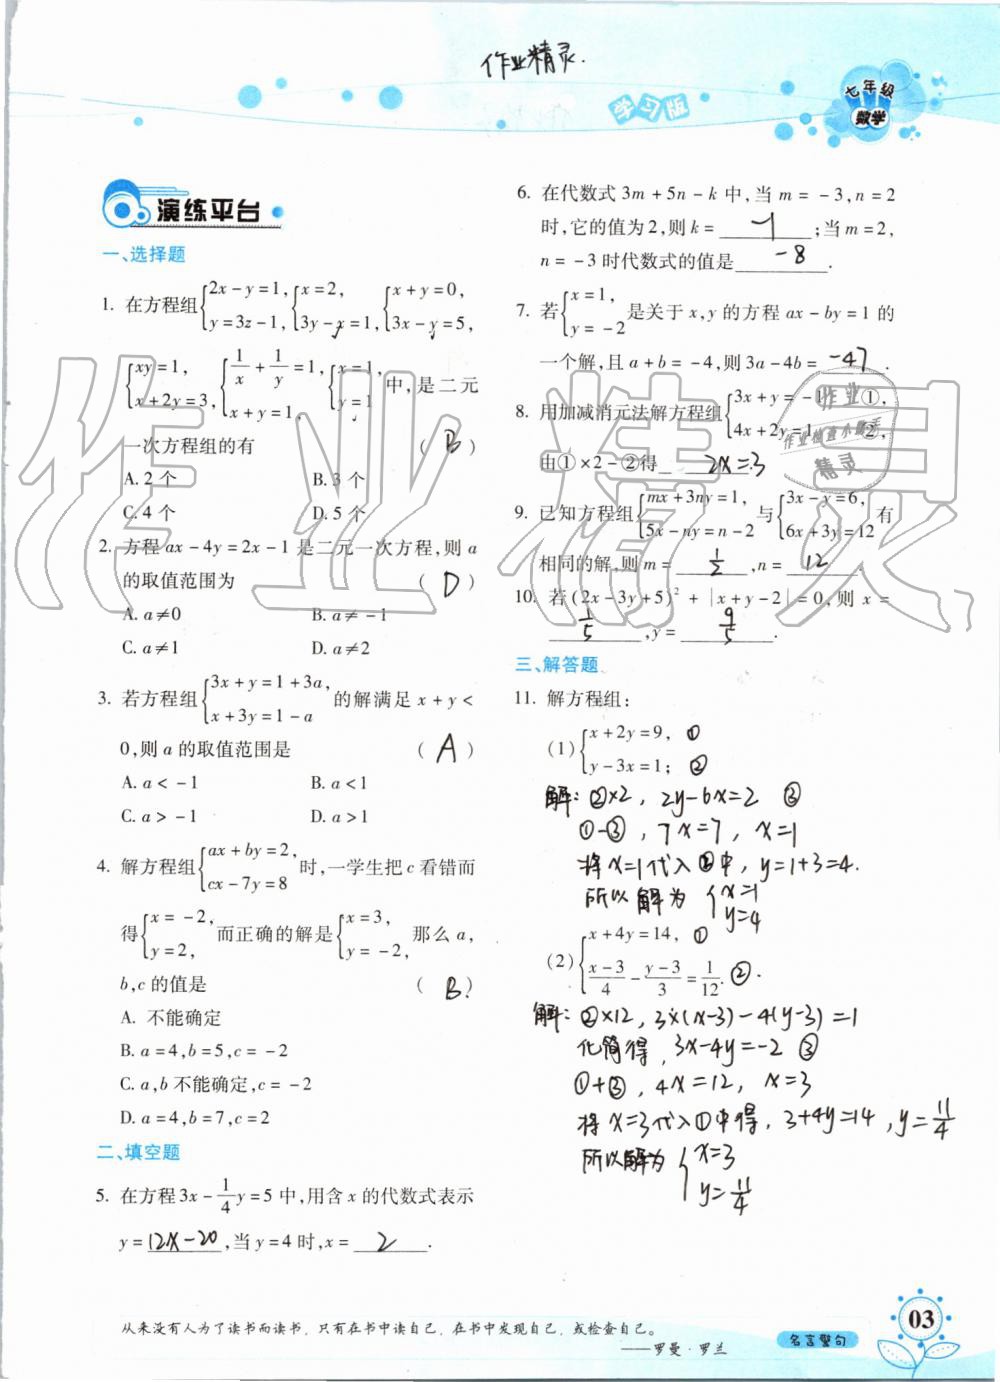 作业精灵.
学习版
七年级
数学
演练平台
一、选择题
1. 在方程组{2x-y=1, y=3z-1, {x=2, 3y-y=1, {x+y=0, 3x-y=5,
{xy=1, x+2y=3, {1/x+1/y=1, x+y=1, {x=1, y=1 中,是二元
一次方程组的有 ( B )
A. 2 个 B. 3 个
C. 4 个 D. 5 个
2. 方程 ax-4y=2x-1 是二元一次方程,则 a
的取值范围为 ( D )
A. a≠0 B. a≠-1
C. a≠1 D. a≠2
3. 若方程组{3x+y=1+3a, x+3y=1-a 的解满足 x+y<
0,则 a 的取值范围是 ( A )
A. a<-1 B. a<1
C. a>-1 D. a>1
4. 解方程组{ax+by=2, cx-7y=8 时,一学生把 c 看错而
得{x=-2, y=2, 而正确的解是{x=3, y=-2, 那么 a,
b,c 的值是 ( B. )
A. 不能确定
B. a=4,b=5,c=-2
C. a,b 不能确定,c=-2
D. a=4,b=7,c=2
二、填空题
5. 在方程 3x-1/4y=5 中,用含 x 的代数式表示
y=12x-20,当 y=4 时,x= 2 .
6. 在代数式 3m+5n-k 中,当 m=-3,n=2
时,它的值为 2,则 k= -1 ;当 m=2,
n=-3 时代数式的值是 -8 .
7. 若{x=1, y=-2 是关于 x,y 的方程 ax-by=1 的
一个解,且 a+b=-4,则 3a-4b= -47 .
8. 用加减消元法解方程组{3x+y=-1 ①, 4x+2y=1 ②,
由①×2-②得 2x=-3
9. 已知方程组{mx+3ny=1, 5x-ny=n-2 与{3x-y=6, 6x+3y=12 有
相同的解,则 m= 1/2 ,n= 12 .
10. 若 (2x-3y+5)²+|x+y-2|=0,则 x=
1/5 ,y= 9/5 .
三、解答题
11. 解方程组:
(1){x+2y=9, ① y-3x=1; ②
解: ②×2, 2y-6x=2 ③
①-③, 7x=7, x=1
将x=1代入②中, y=1+3=4.
所以解为 {x=1 y=4
(2){x+4y=14, ① (x-3)/4-(y-3)/3=1/12. ②.
解: ②×12, 3×(x-3)-4(y-3)=1
化简得, 3x-4y=-2 ③
①+③, 4x=12, x=3
将x=3代入①中得, 3+4y=14, y=11/4
所以解为 {x=3 y=11/4
作业精灵
作业
作业检查小帮手
精灵
从来没有人为了读书而读书,只有在书中读自己,在书中发现自己,或检查自己。
——罗曼·罗兰
名言警句
03